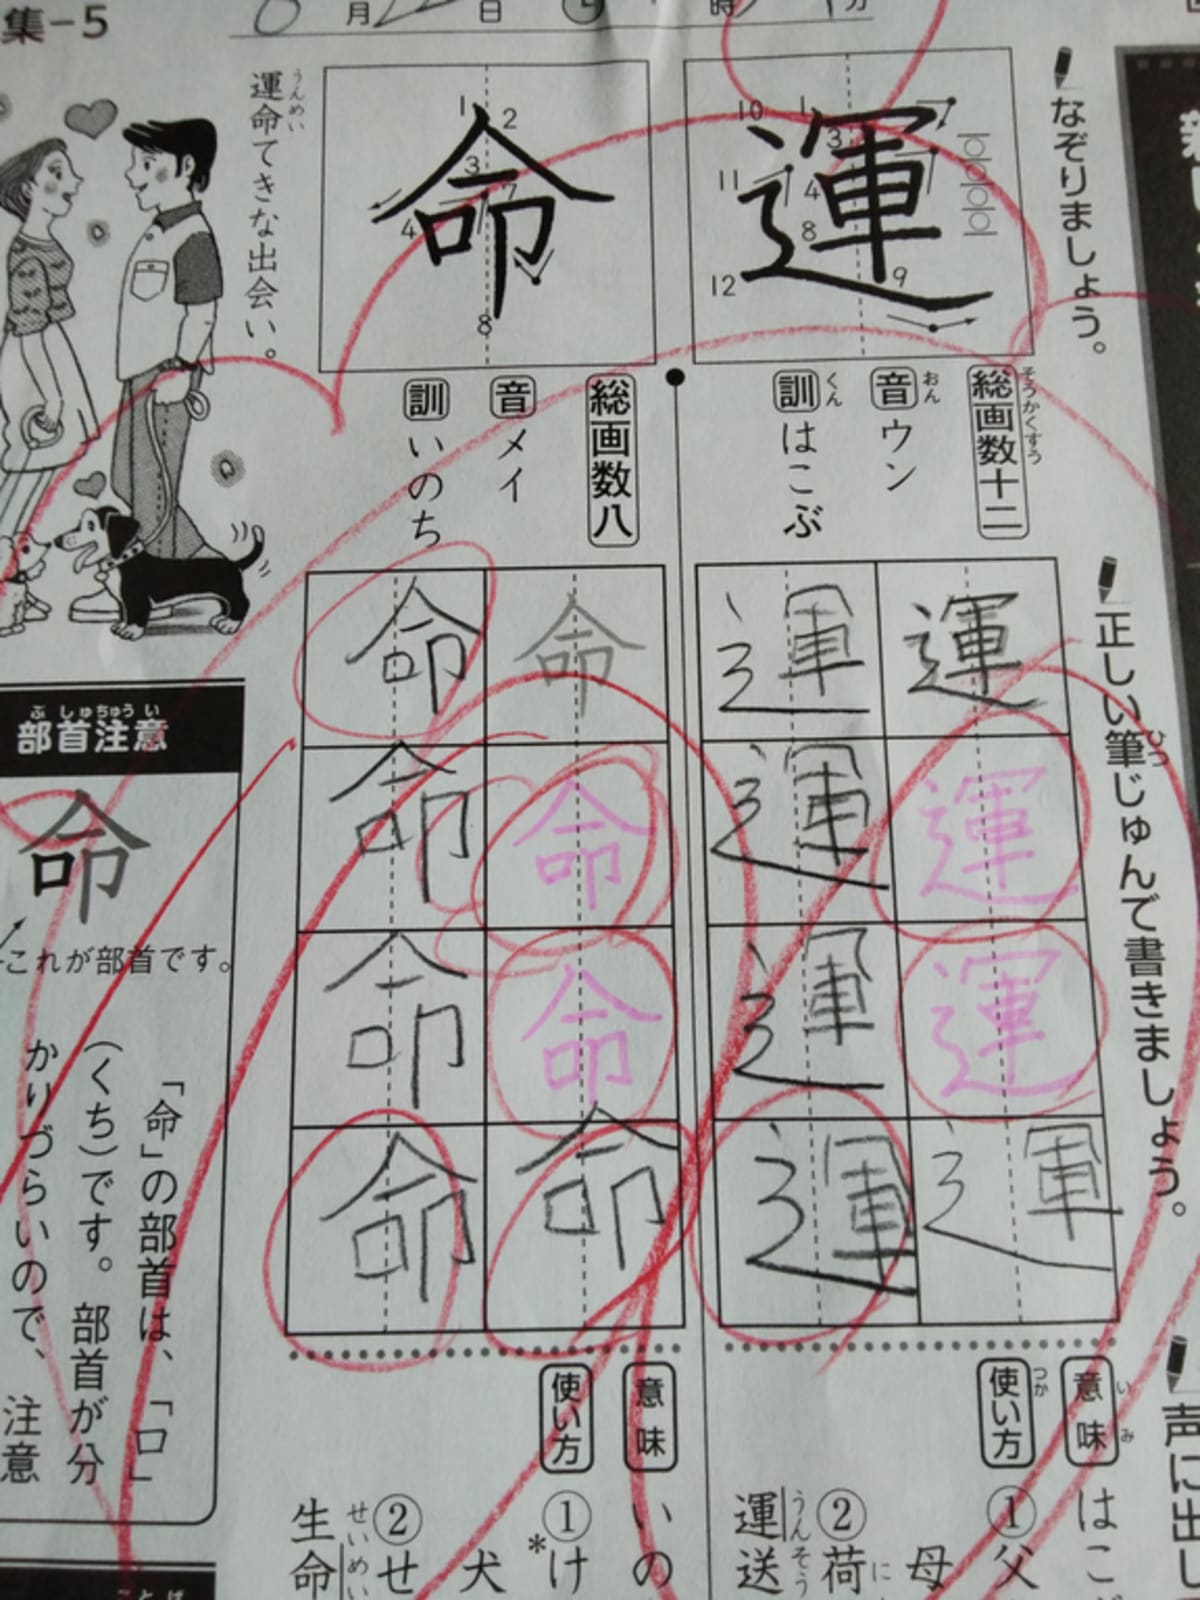 集-5
月
日
時
分
なぞりましょう。
運
10
1
3
11
4
8
9
12
総画数十二
そうかくすう
音
おん
ウン
訓
くん
はこぶ
命
1
2
3
7
4
8
総画数八
音
メイ
訓
いのち
運命てきな出会い。
うんめい
正しい筆じゅんで書きましょう。
ひつ
運
運
運
運
運
運
運
運
命
命
命
命
命
命
命
命
部首注意
ぶしゅちゅうい
命
これが部首です。
「命」の部首は、「口」
(くち)です。部首が分
かりづらいので、注意
声に出し
意味
いみ
はこ
使い方
つか
①父
母
②荷
に
運送
うんそう
意味
いの
使い方
①け
*
犬
②せ
生命
せいめい
ことば